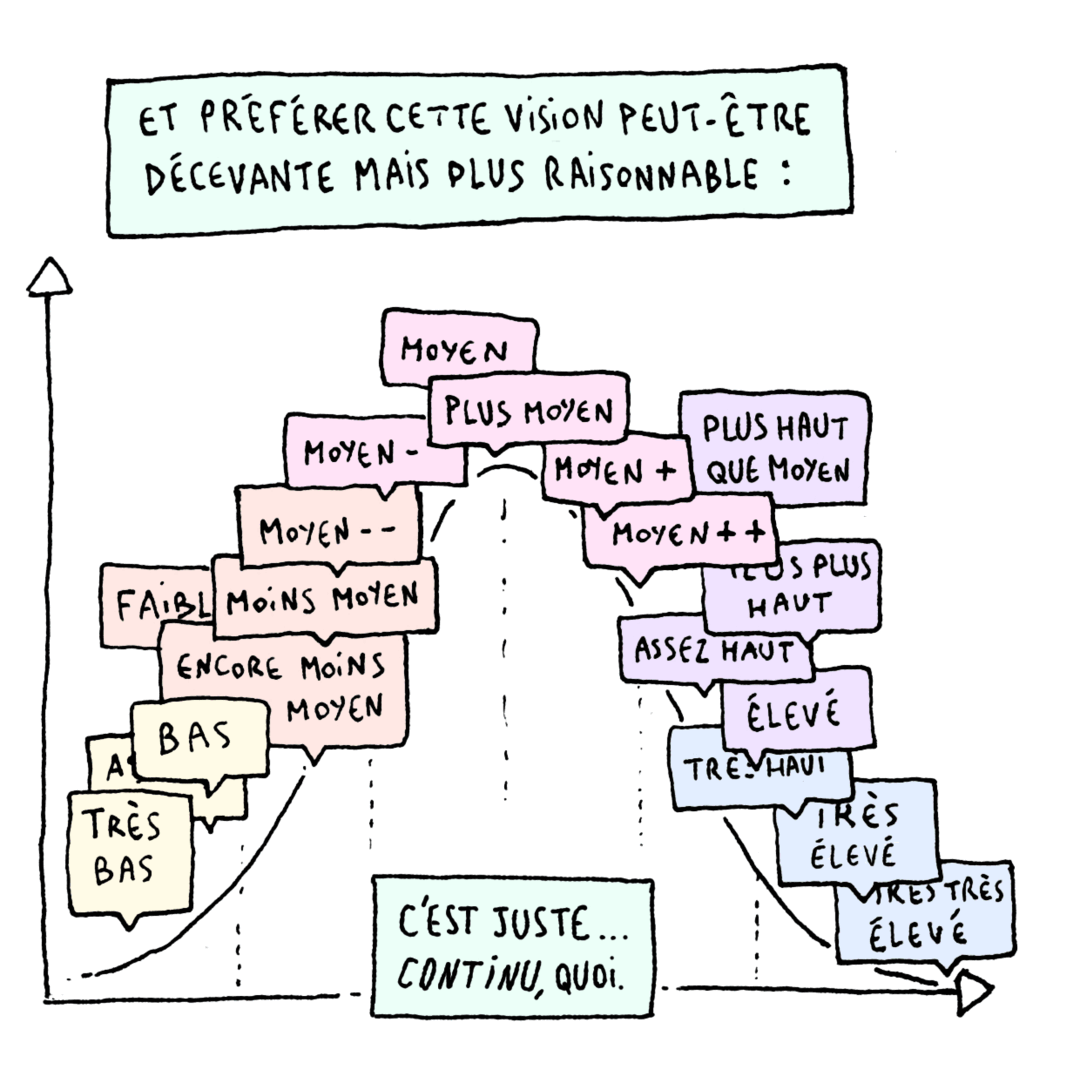 ET PRÉFÉRER CETTE VISION PEUT-ÊTRE
DÉCEVANTE MAIS PLUS RAISONNABLE :
MOYEN
PLUS MOYEN
MOYEN -
MOYEN +
PLUS HAUT
QUE MOYEN
MOYEN - -
MOYEN + +
FAIBL
MOINS MOYEN
PLUS
HAUT
ASSEZ HAUT
ENCORE MOINS
MOYEN
BAS
ÉLEVÉ
TRÈS HAUT
TRÈS
BAS
TRÈS
ÉLEVÉ
TRÈS TRÈS
ÉLEVÉ
C'EST JUSTE...
CONTINU, QUOI.